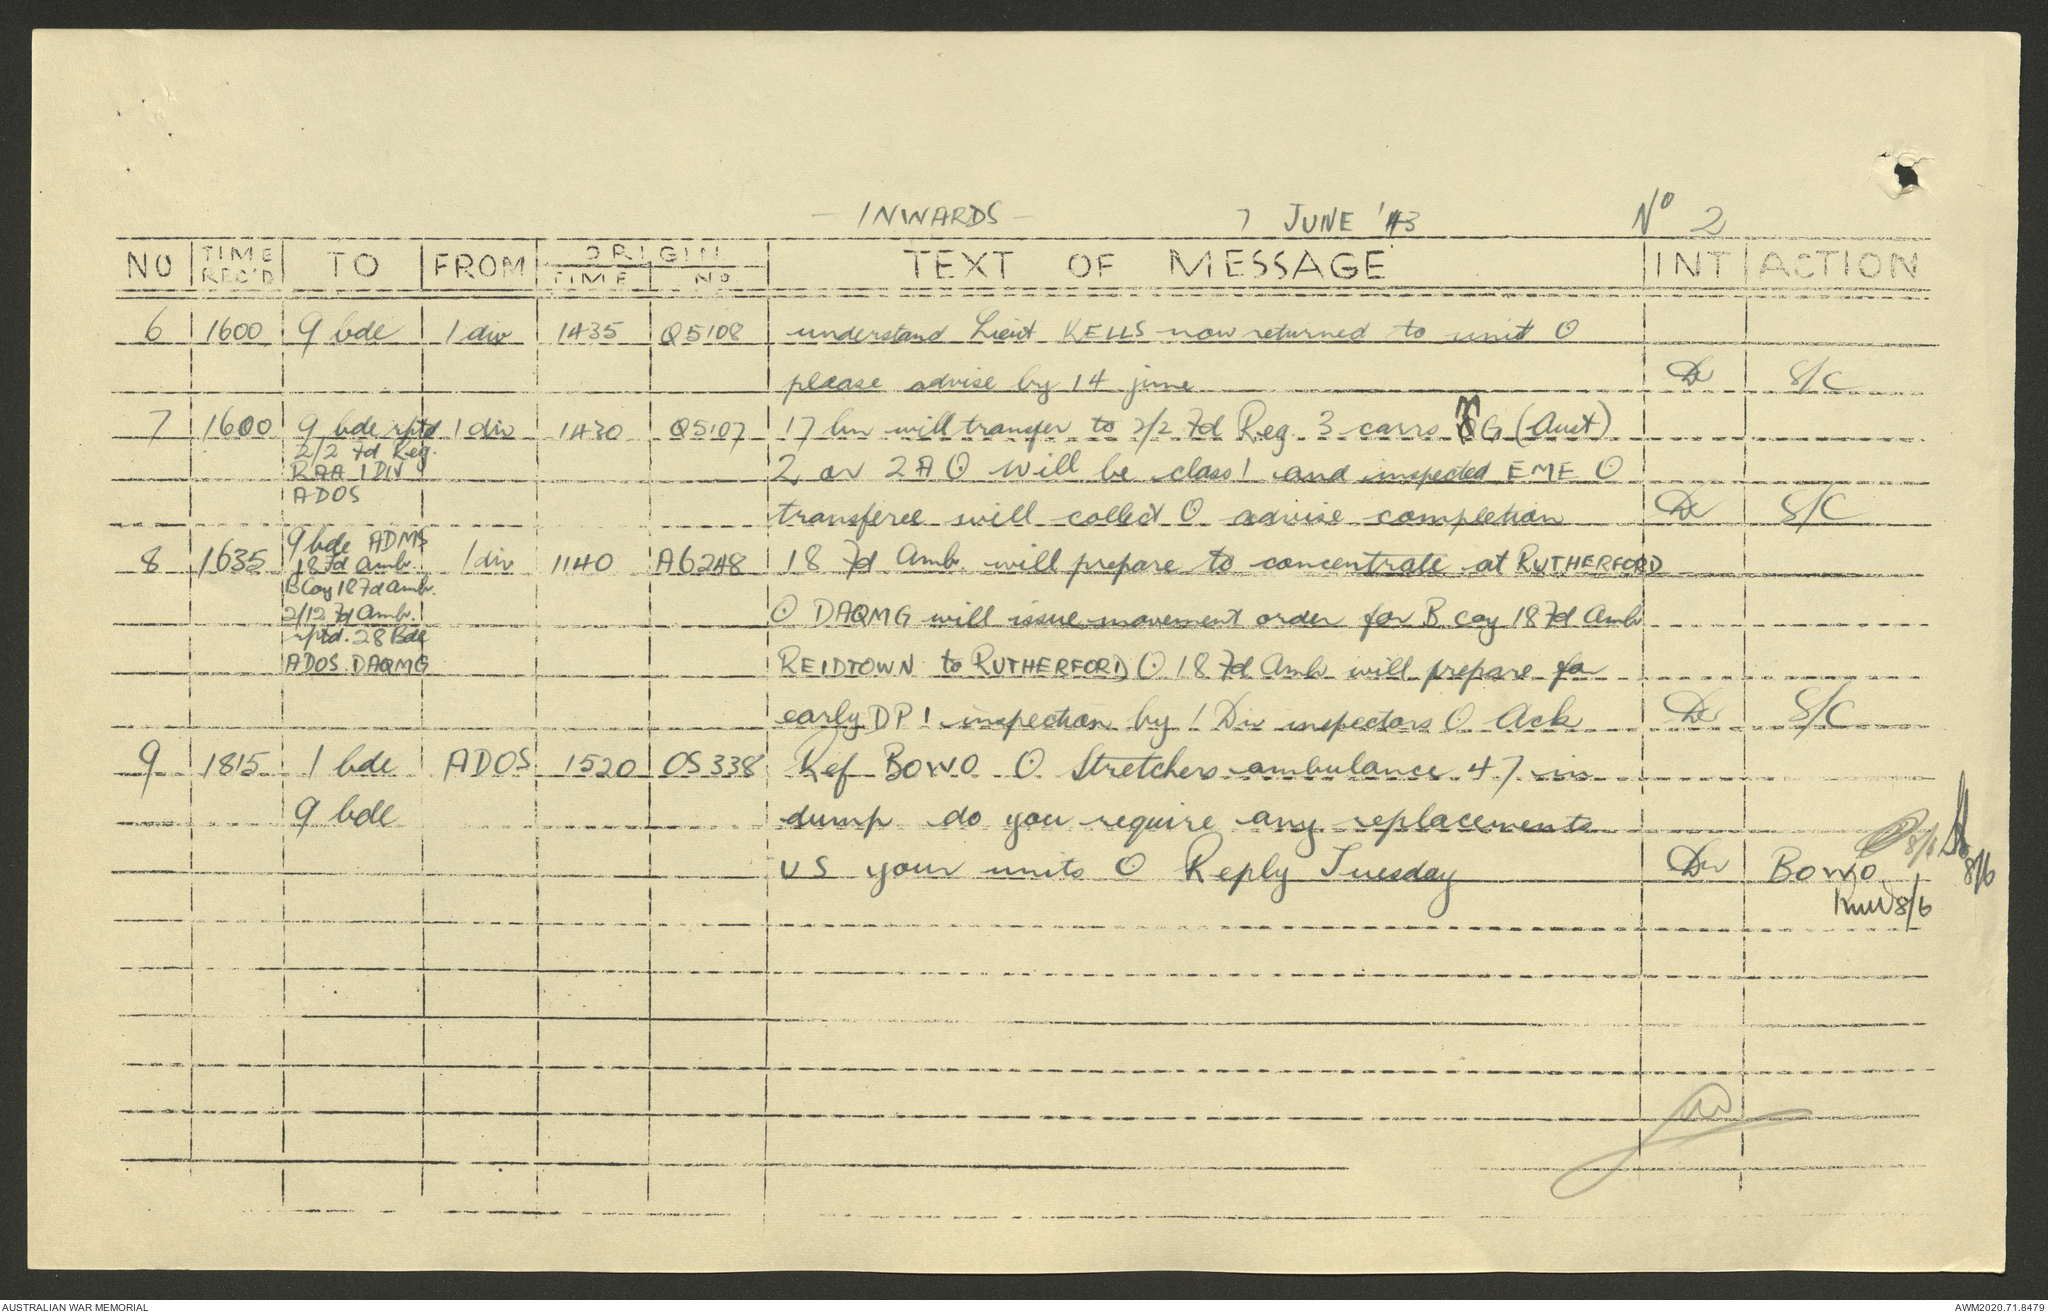 - INWARDS - 7 JUNE '43 No 2
NO TIME REC'D TO FROM ORIGIN TIME No TEXT OF MESSAGE INT ACTION
6 1600 9 bde 1 div 1435 Q5108 understand Lieut KELLS now returned to unit O
please advise by 14 june Dw S/C
7 1600 9 bde rptd 1 div 1430 Q5107 17 bn will transfer to 2/2 7d Reg. 3 carrs G (Aust)
2/2 7d Reg.
RAA 1 DIV 2 or 2A O will be class 1 and inspected EME O
ADOS
transferee will collect O advise completion Dw S/C
9 bde ADMS
8 1635 18 7d Amb. 1 div 1140 A6248 18 7d Amb. will prepare to concentrate at RUTHERFORD
B Coy 18 7d Amb.
2/12 7d Amb. O DAQMG will issue movement order for B coy 18 7d Amb
rptd. 28 Bde
ADOS. DAQMG REIDTOWN to RUTHERFORD O 18 7d Amb will prepare for
early DP1 inspection by 1 Div inspectors O Ack Dw S/C
9 1815 1 bde ADOS 1520 OS338 Ref BOWO O Stretchers ambulance 47 in
9 bde dump do you require any replacements
US your units O Reply Tuesday Dw BOWO 8/6 8/6
8/6
AUSTRALIAN WAR MEMORIAL AWM2020.71.8479